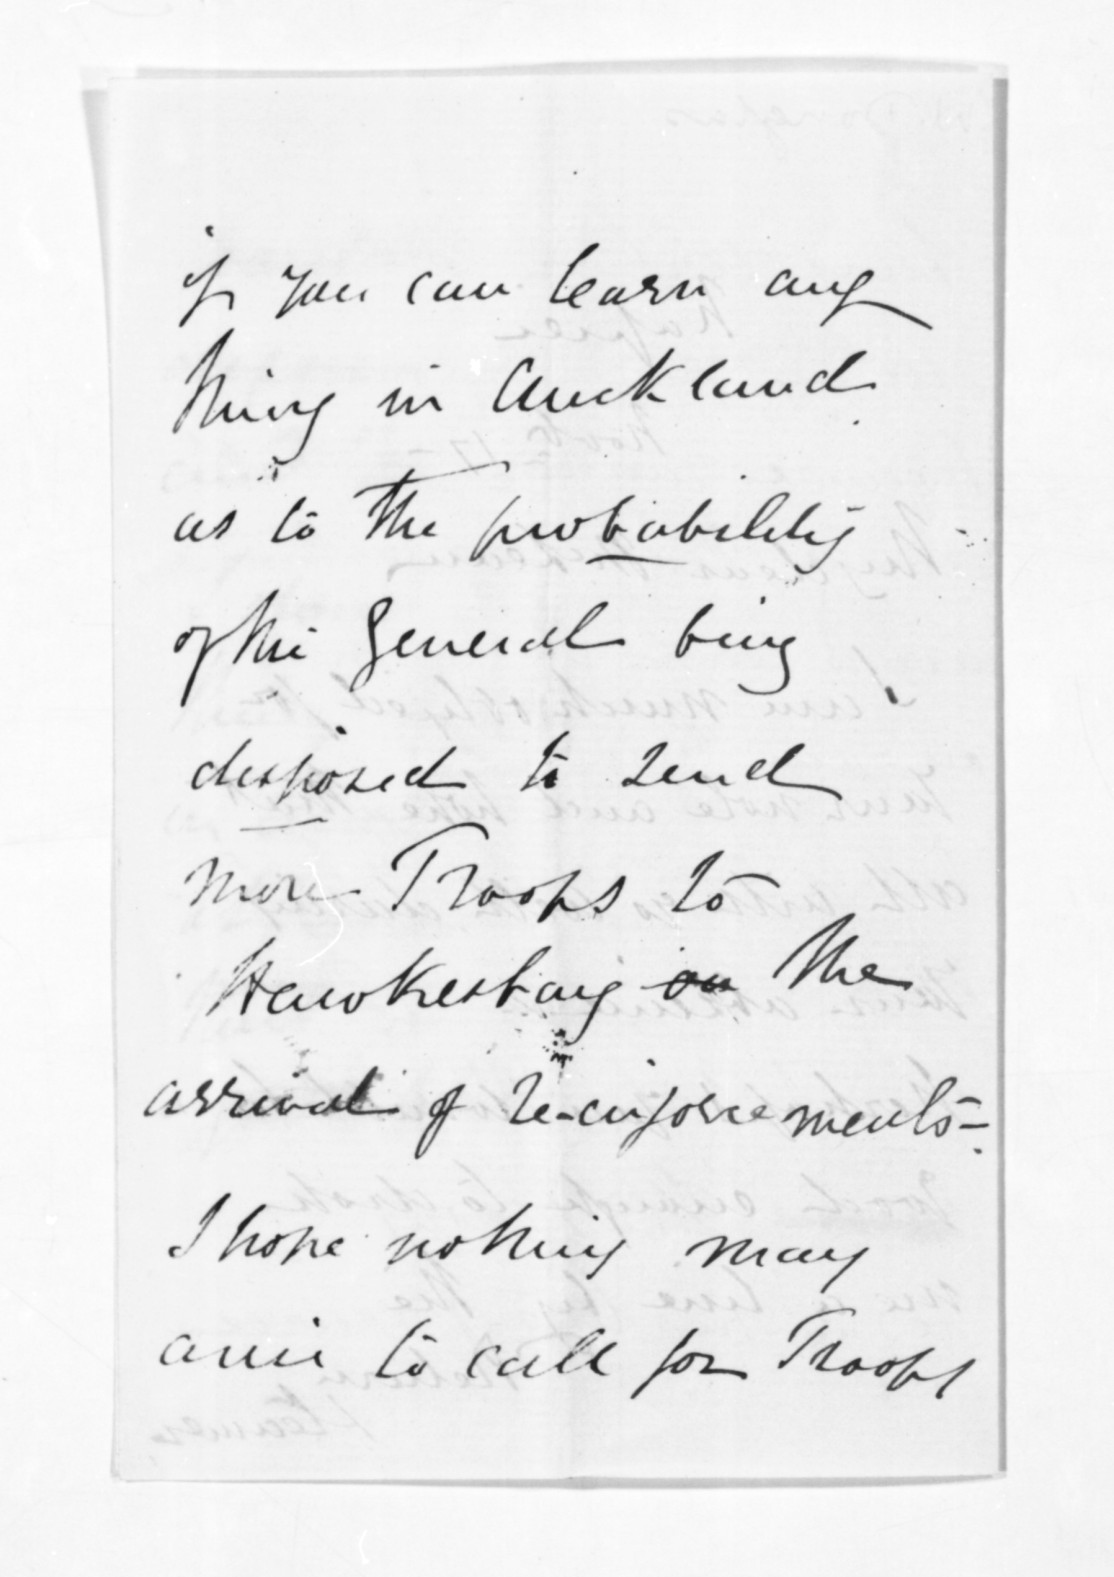 if you can learn any
thing in Auckland
as to the probability
of the General being
disposed to send
more Troops to
Hawkesbay on the
arrival of re-inforcements -
I hope nothing may
arise to call for Troops